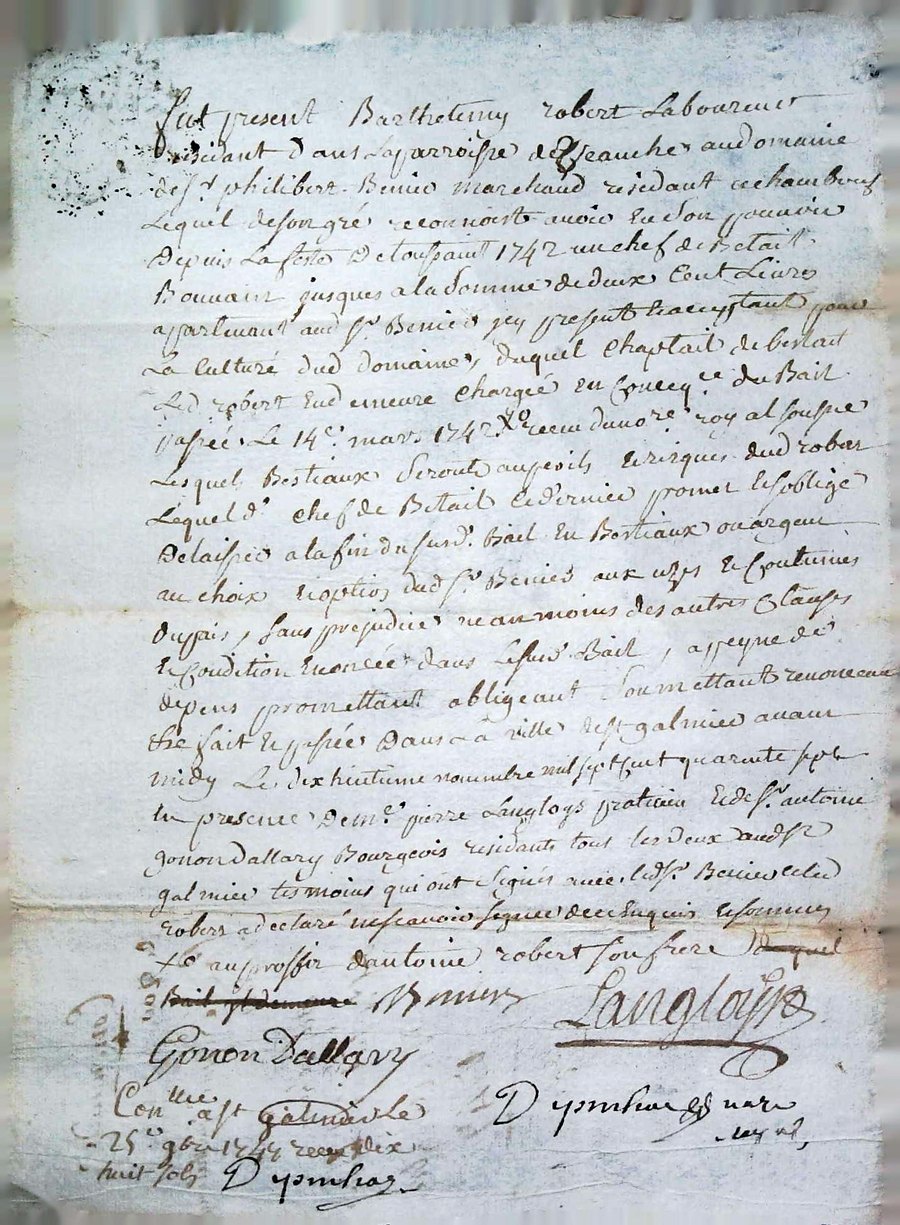 fut present Barthelemy robert Laboureur
residant dans La parroisse de Veauche au domaine
de sr philibert Benier marchand residant a chambeuf
Lequel de son gré reconnoist avoir En son pouvoir
Depuis La feste De toussaint 1742 un chef de Betail
Bouvain jusques a la somme de deux Cent Livres
appartenant aud sr Benier jcy present Et acceptant pour
La Culture dud domaine, duquel Chaptail de bestail
Led robert En demeure Chargée En Conceqce du Bail
passée Le 14e mars 1742 recu du no.re roy al soussne
Lesquels Bestiaux Seront au perils Et risques dud robert
Lequel d. chef de Betail Ce dernier promet Et s'oblige
Delaisser a la fin du susd. Bail En Bestiaux ou argent
au choix Et option dud sr Benier aux uzes Et Coutumes
du pais, sans prejudice neanmoins des autres Clauses
Et Condition Enoncée dans Le susd Bail, a peyne de
depens promettant obligeant Soumettant renonceant
fait Et passée Dans La ville de st galmier avant
midy Le dix huitieme novembre mil sept Cent quarente sept
En presence De me pierre Langloys praticien Et de sr antoine
gonon Dallary Bourgeois residants tous les deux aud st
galmier tesmoins qui ont Signés avec led sr Benier Celed
robert a declaré ne scavoir signer de ce Enquis Et sommés
au proffit d'antoine robert son frere duquel
Bail jl demeure Benier Langloys
Gonon Dallary
Conlle a st galmier Le Dupinhac nore
25e 9bre 1747 recu dix royal
huit sols Dupinhac